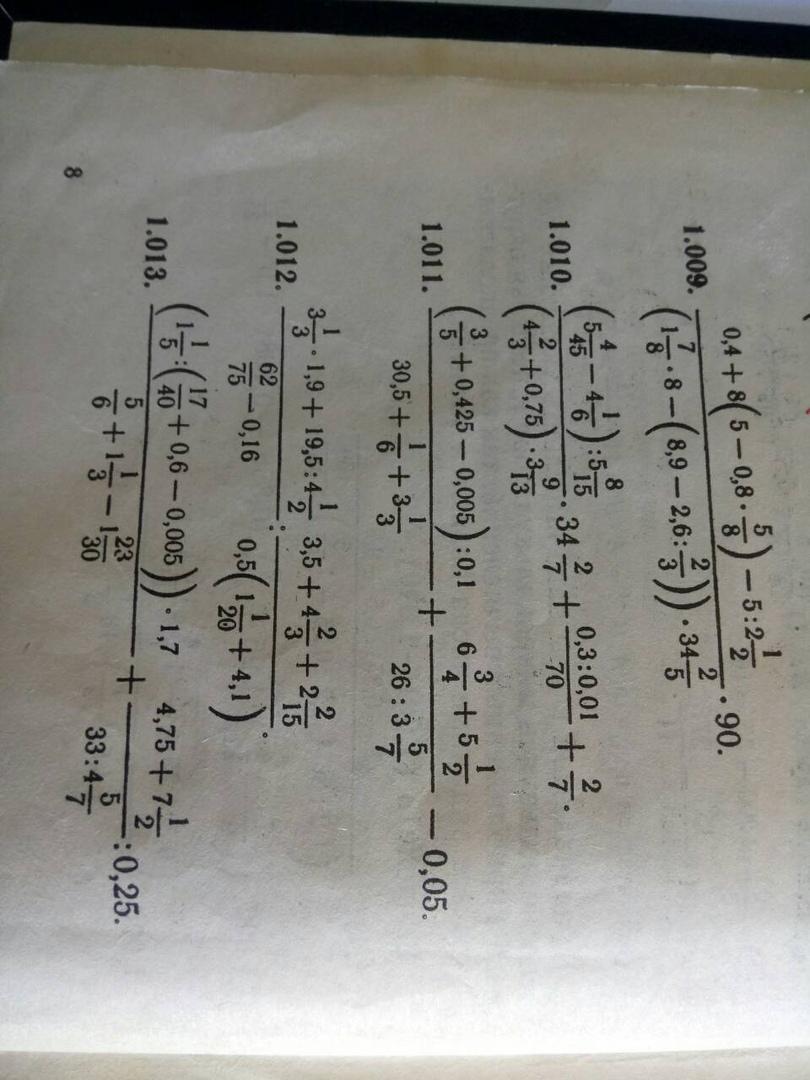 1.009. \frac{0,4 + 8\left(5 - 0,8 \cdot \frac{5}{8}\right) - 5 : 2\frac{1}{2}}{\left(1\frac{7}{8} \cdot 8 - \left(8,9 - 2,6 : \frac{2}{3}\right)\right) \cdot 34\frac{2}{5}} \cdot 90.
1.010. \frac{\left(5\frac{4}{45} - 4\frac{1}{6}\right) : 5\frac{8}{15}}{\left(4\frac{2}{3} + 0,75\right) \cdot 3\frac{9}{13}} \cdot 34\frac{2}{7} + \frac{0,3 : 0,01}{70} + \frac{2}{7}.
1.011. \frac{\left(\frac{3}{5} + 0,425 - 0,005\right) : 0,1}{30,5 + \frac{1}{6} + 3\frac{1}{3}} + \frac{6\frac{3}{4} + 5\frac{1}{2}}{26 : 3\frac{5}{7}} - 0,05.
1.012. \frac{3\frac{1}{3} \cdot 1,9 + 19,5 : 4\frac{1}{2}}{\frac{62}{75} - 0,16} : \frac{3,5 + 4\frac{2}{3} + 2\frac{2}{15}}{0,5\left(1\frac{1}{20} + 4,1\right)}.
1.013. \frac{\left(1\frac{1}{5} : \left(\frac{17}{40} + 0,6 - 0,005\right)\right) \cdot 1,7}{\frac{5}{6} + 1\frac{1}{3} - 1\frac{23}{30}} + \frac{4,75 + 7\frac{1}{2}}{33 : 4\frac{5}{7}} : 0,25.
8